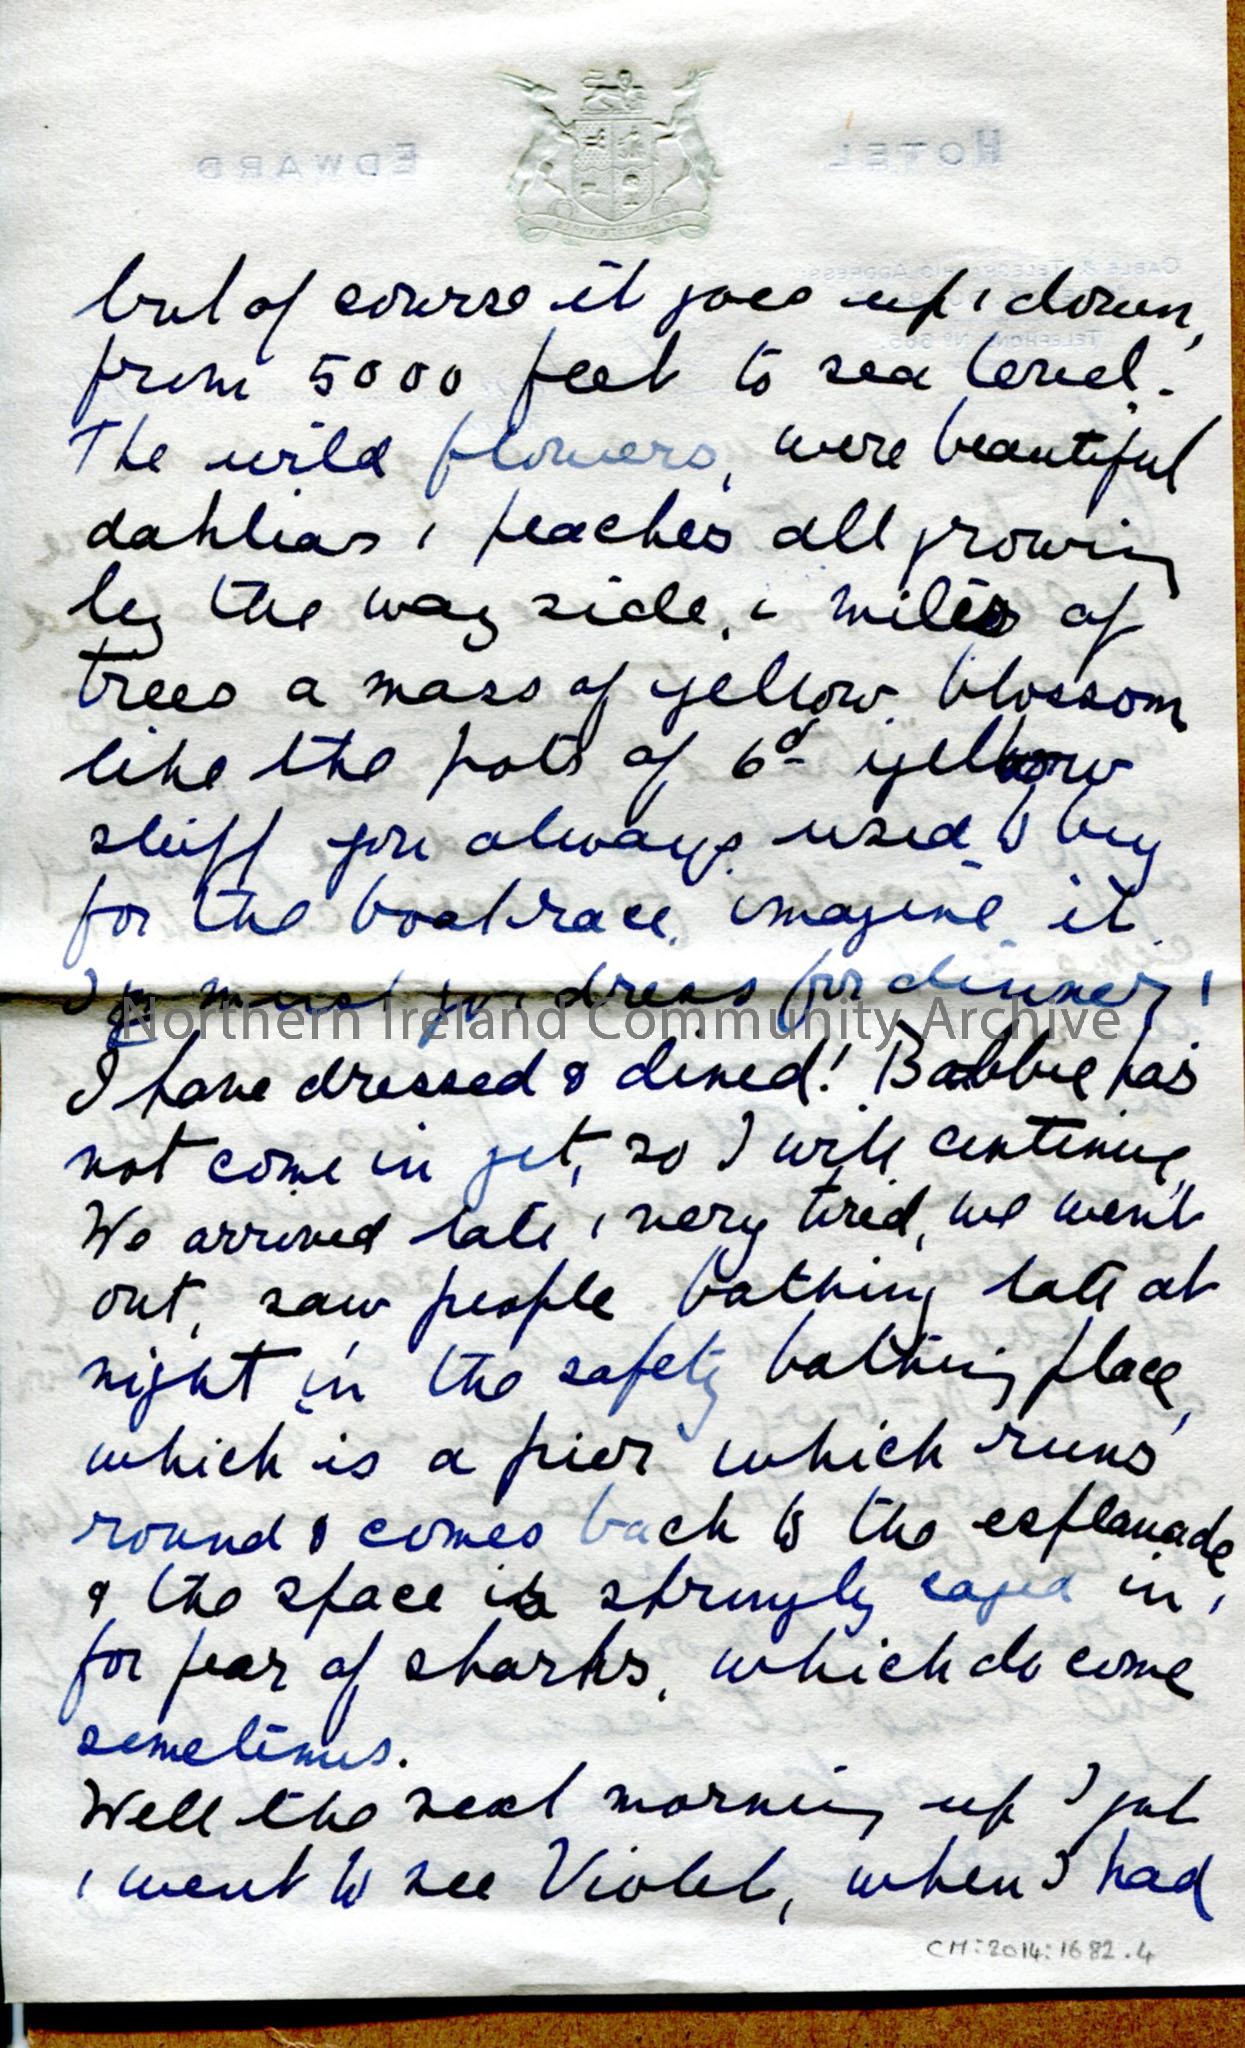 HOTEL EDWARD
CABLE & TELEGRAPHIC ADDRESS:
TELEPHONE Nº
but of course it goes up & down,
from 5000 feet to sea level.
The wild flowers, were beautiful
dahlias & peaches all growing
by the way side, & miles of
trees a mass of yellow blossom
like the pots of 6d yellow
stuff you always used to buy
for the boatrace. imagine it.
I must go & dress for dinner!
I have dressed & dined! Babbie has
not come in yet, so I will continue,
We arrived late & very tired, we went
out, saw people bathing late at
night in the safety bathing place,
which is a pier which runs
round & comes back to the esplanade
& the space is strongly caged in,
for fear of sharks, which do come
sometimes.
Well the next morning up I got
& went to see Violet, when I had
CM:2014:1682.4
Northern Ireland Community Archive